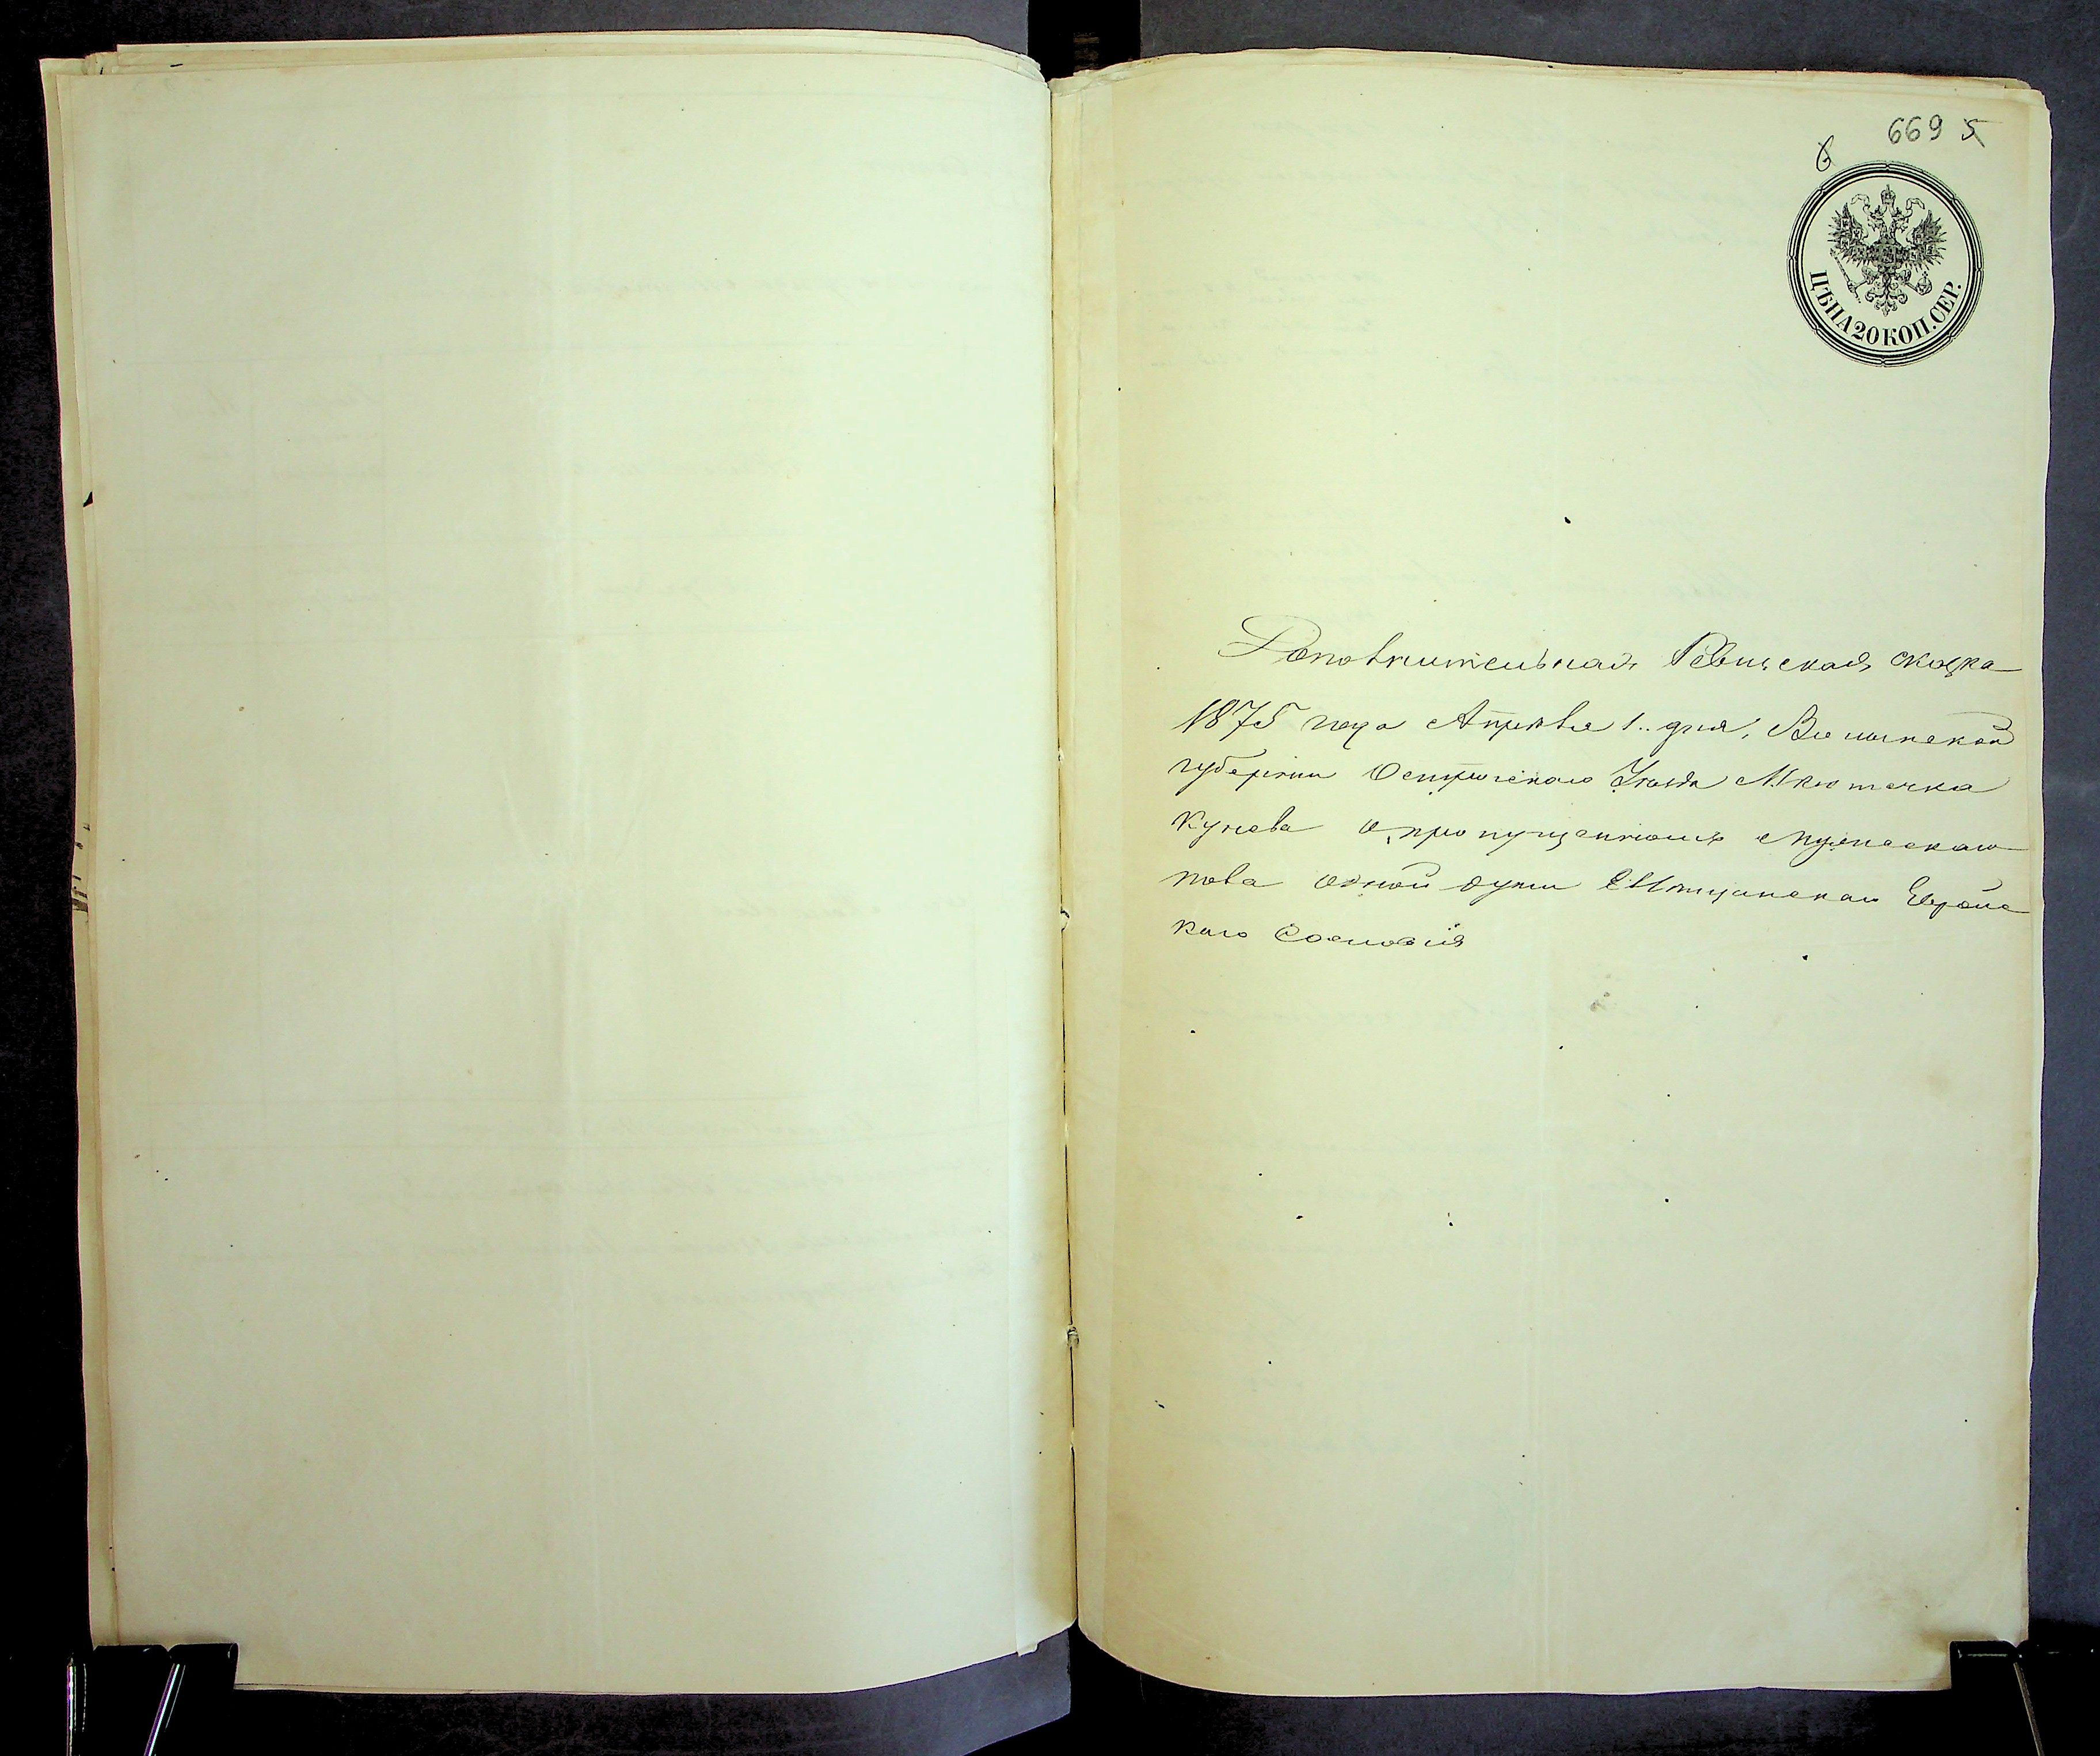 669 5
6
ЦѢНА 20 КОП. СЕР.
Дополнительная Ревизская сказка
1875 года Апрѣля 1.. дня, Волынской
губернии Острожскаго Уѣзда Мѣстечка
Кунева о пропущенномъ мужескаго
пола одной души Мѣщанскаго Еврейс
каго Сословія